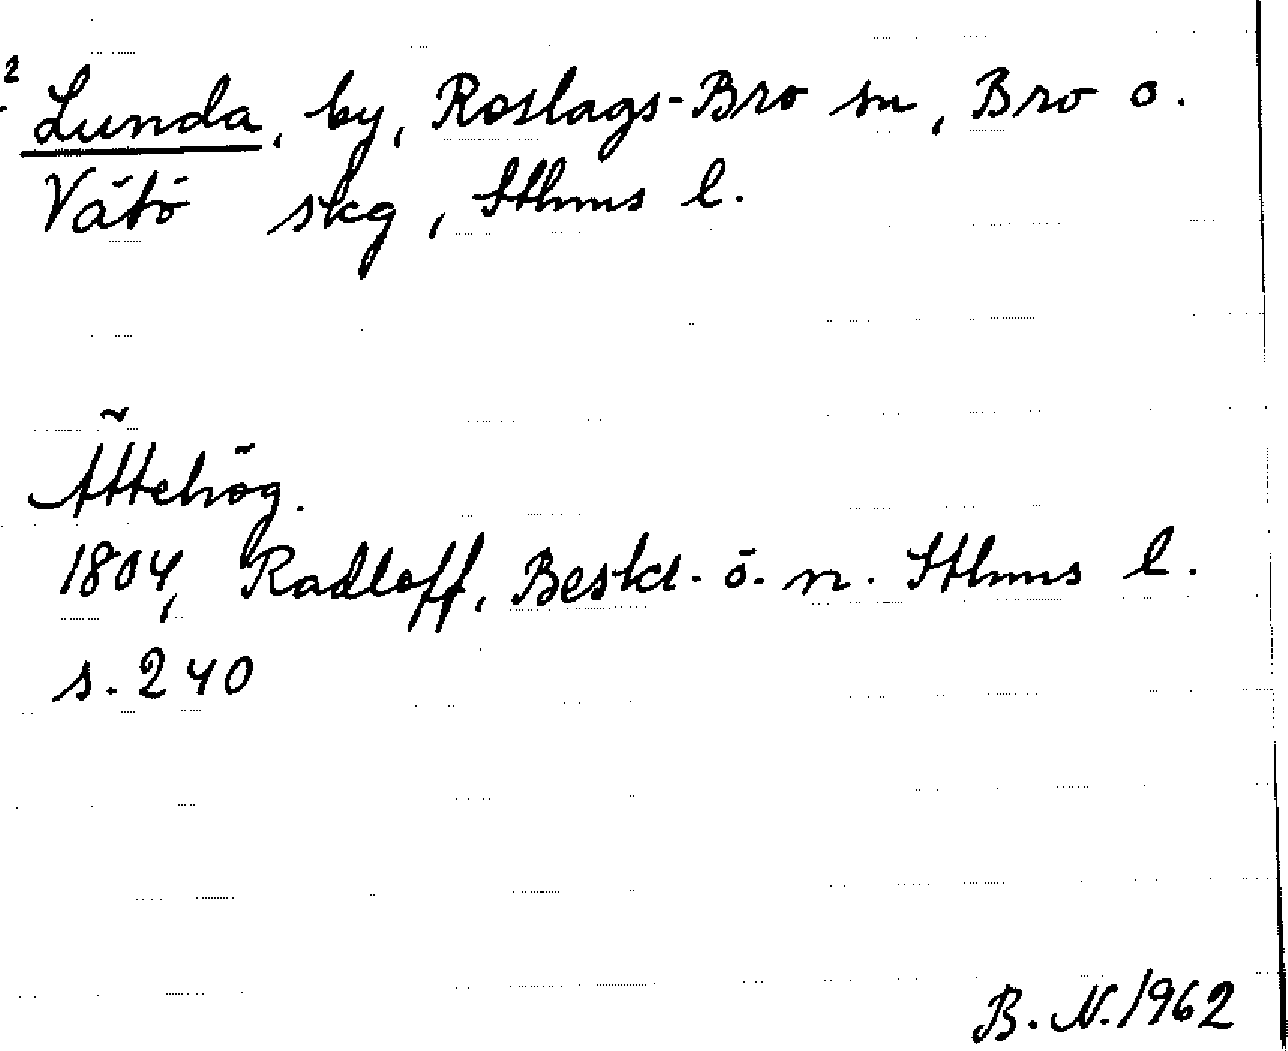 2
Lunda, by, Roslags-Bro sn, Bro o.
Vätö skg, Sthms l.
Ättehög.
1804, Radloff, Beskr. ö. n. Sthms l.
s. 240
B. N. 1962